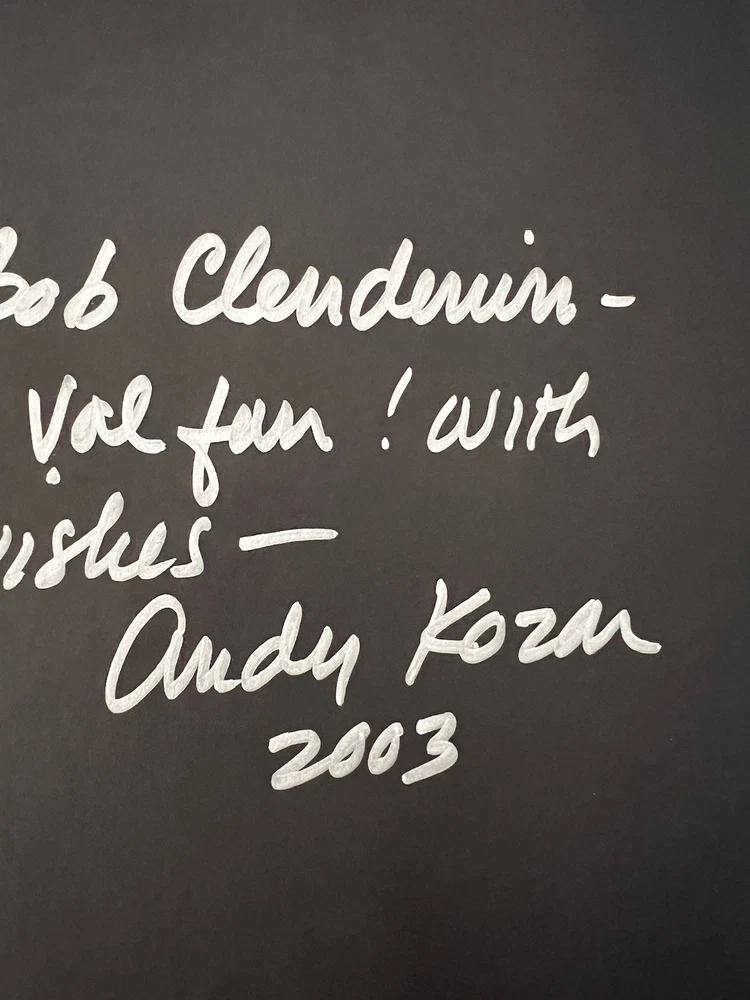 Bob Clendenin -
Vol fan! with
wishes —
Andy Kozar
2003